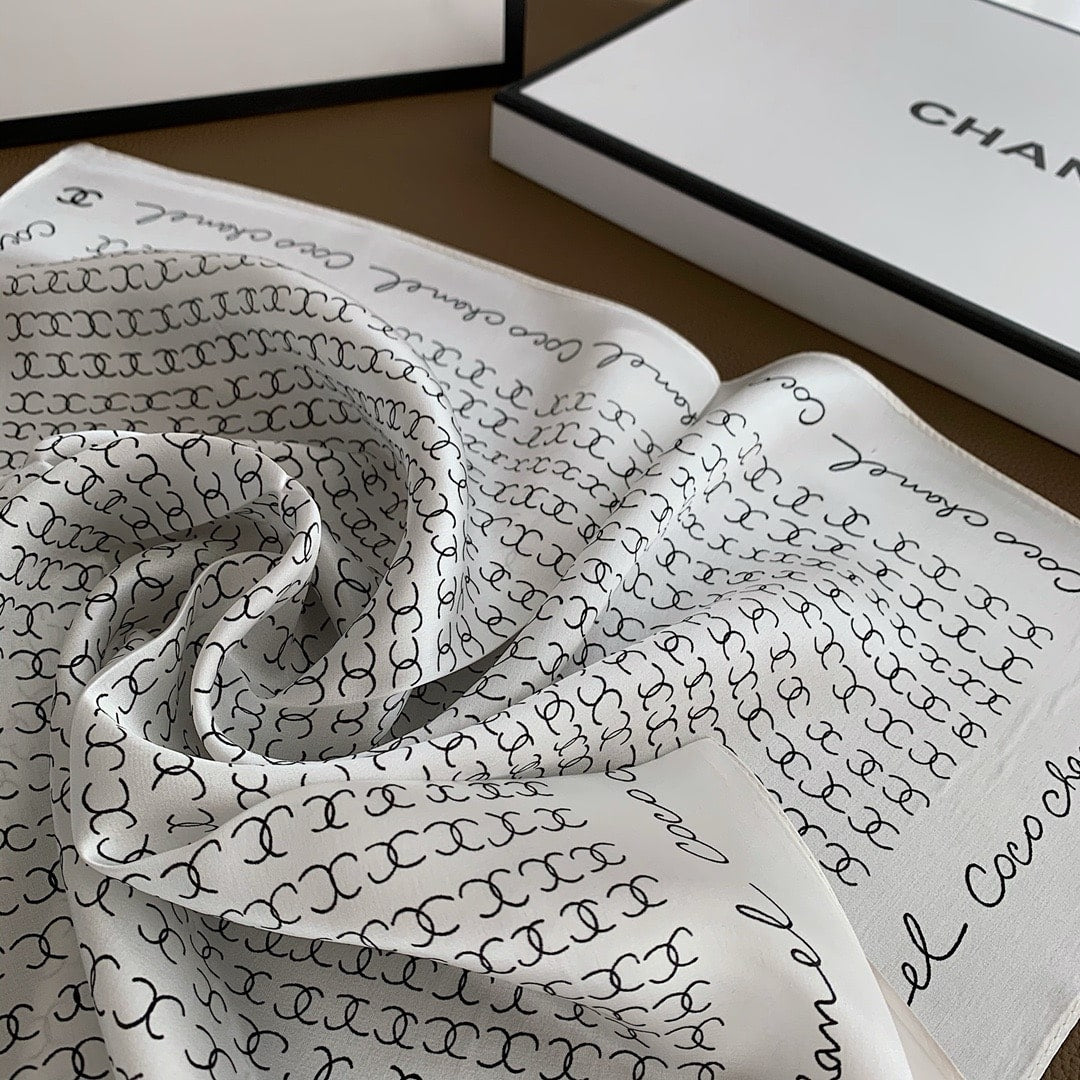 CHAN
Coco Chanel Coco Chanel Coco Chanel
Coco Chanel Coco
el Coco Cha
Coco
hanel